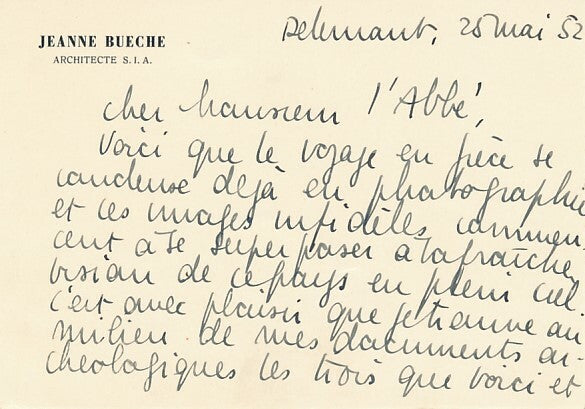 JEANNE BUECHE
ARCHITECTE S. I. A.
Delemont, 28 mai 52
cher monsieur l'Abbé,
Voici que le voyage en grèce se
condense déjà en photographie
et ces images infidèles commen-
cent à se superposer à la fraîche
vision de ce pays en plein ciel.
c'est avec plaisir que je trouve au
milieu de mes documents ar-
chéologiques les trois que voici et